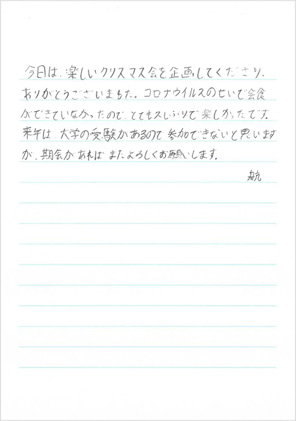 今日は、楽しいクリスマス会を企画してくださり、
ありがとうございました。コロナウイルスのせいで会食
ができていなかったので、とても久しぶりで楽しかったです。
来年は、大学の受験があるので参加できないと思います
が、機会があればまたよろしくお願いします。
航